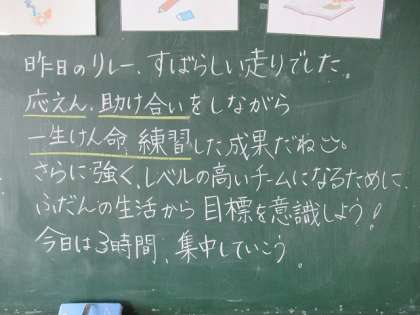 昨日のリレー、すばらしい走りでした。
応えん、助け合いをしながら
一生けん命、練習した成果だね。
さらに強く、レベルの高いチームになるために、
ふだんの生活から目標を意識しよう!
今日は3時間、集中していこう。